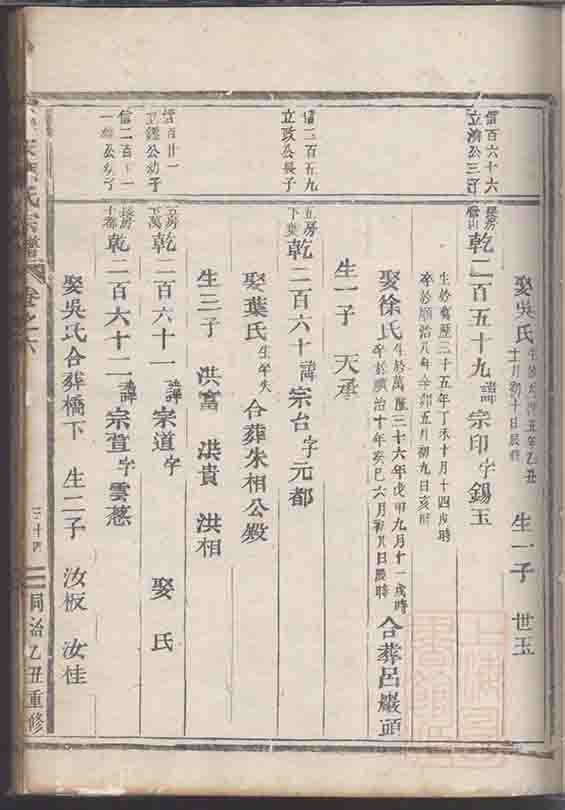 娶吳氏 生一子 世玉
十月初十日辰時
信百六十六
立濟公三子
乾二百五十九諱宗印字錫玉
生於萬歷三十五年丁未十月十四戌時
卒於順治八年辛卯五月初九日亥時
娶徐氏生於萬歷三十六年戊申九月十一戌時
卒於順治十年癸巳六月初 日辰時
合葬呂巖頭
生一子 天承
信二百五九
立政公長子
五房
下葉
乾二百六十諱宗台字元都
娶葉氏生卒失合葬朱相公殿
生三子 洪富 洪貴 洪相
信百廿一
立鑑公幼子
五房
下萬
乾二百六十一諱宗道字 娶 氏
信二百十一
公幼子
乾二百六十二諱宗萱字雲慈
娶吳氏合葬橋下 生二子 汝板 汝佳
氏宗譜 卷之六 三十四 同治乙丑重修